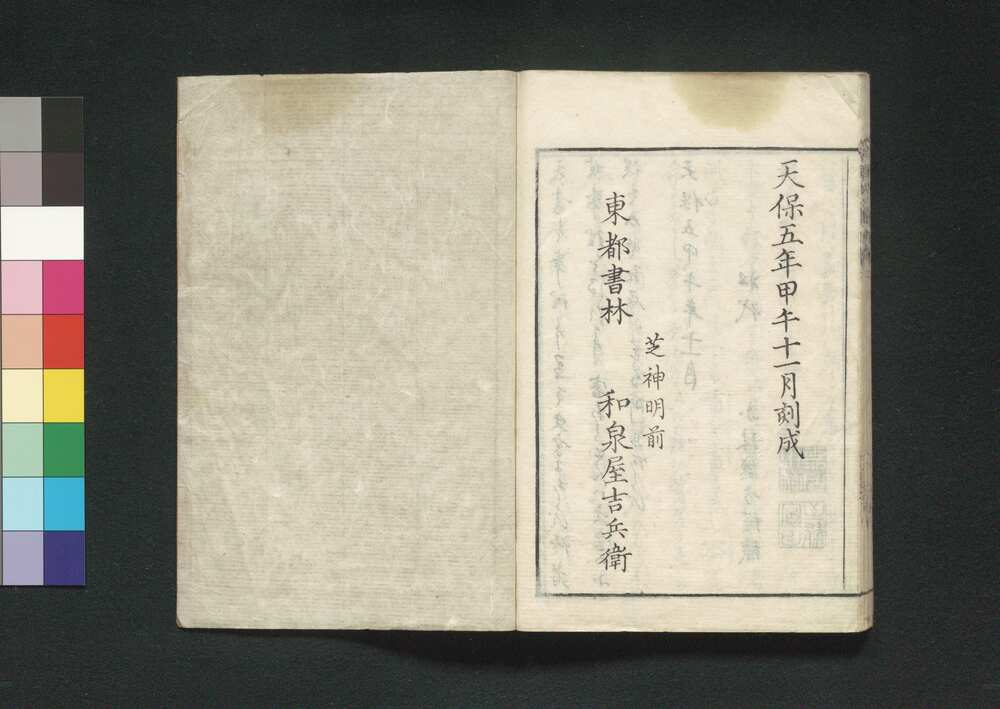 天保五年甲午十一月刻成
芝神明前
東都書林　和泉屋吉兵衛